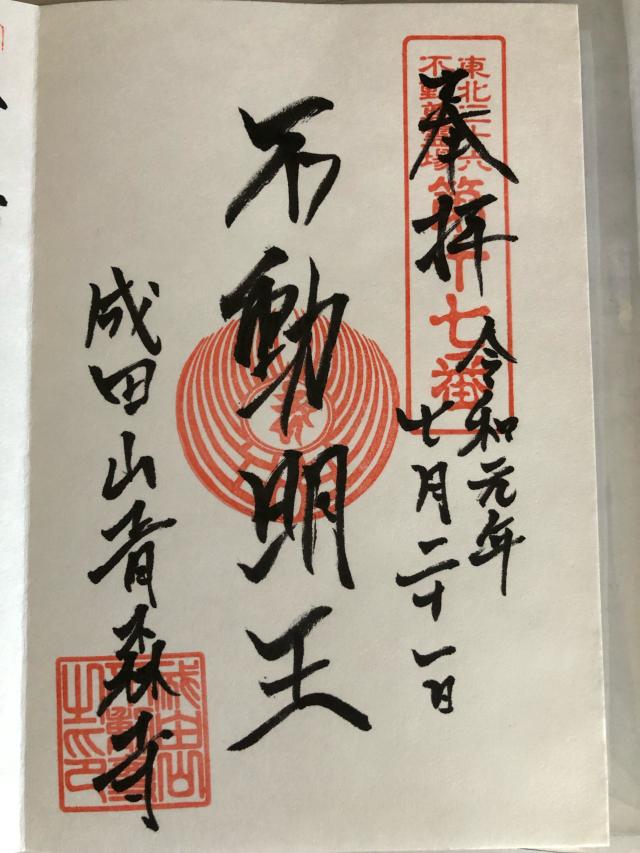 東北三十六
不動尊霊場
第十七番
奉拝
令和元年
七月二十一日
不動明王
成田山青森寺